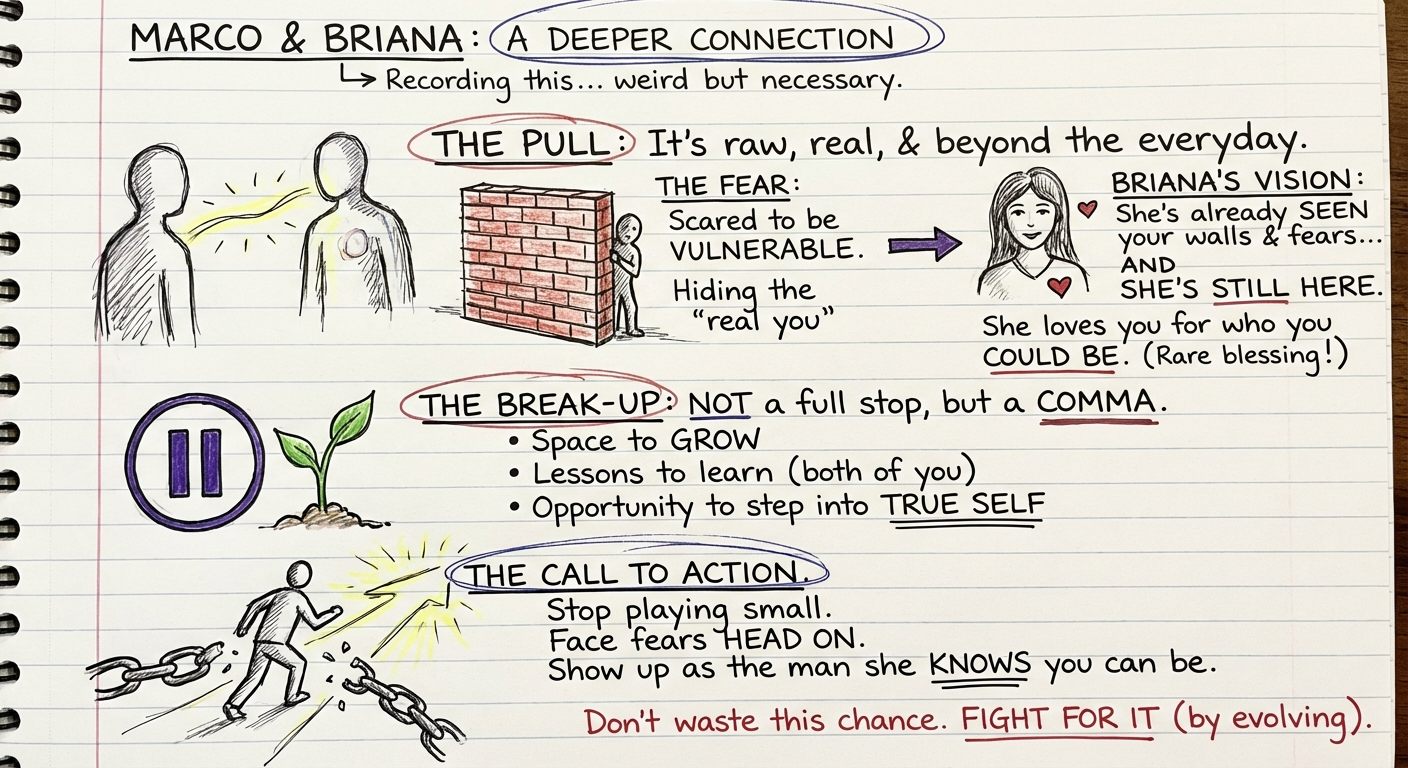 MARCO & BRIANA: A DEEPER CONNECTION
Recording this... weird but necessary.
THE PULL: It's raw, real, & beyond the everyday.
THE FEAR:
Scared to be
VULNERABLE.
Hiding the
"real you"
BRIANA'S VISION:
She's already SEEN
your walls & fears...
AND
SHE'S STILL HERE.
She loves you for who you
COULD BE. (Rare blessing!)
THE BREAK-UP: NOT a full stop, but a COMMA.
• Space to GROW
• Lessons to learn (both of you)
• Opportunity to step into TRUE SELF
THE CALL TO ACTION.
Stop playing small.
Face fears HEAD ON.
Show up as the man she KNOWS you can be.
Don't waste this chance. FIGHT FOR IT (by evolving).